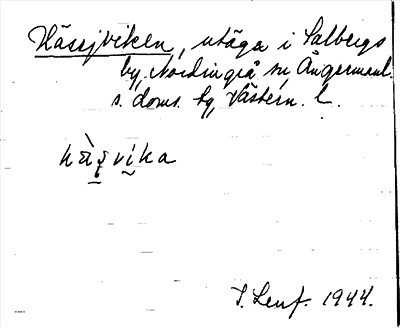 Hässjviken, utäga i Salbergs
by, Nordingrå sn, Ångermanl.
s. doms. hg, Västern. l.
hàs̱vi̱ka
1944.